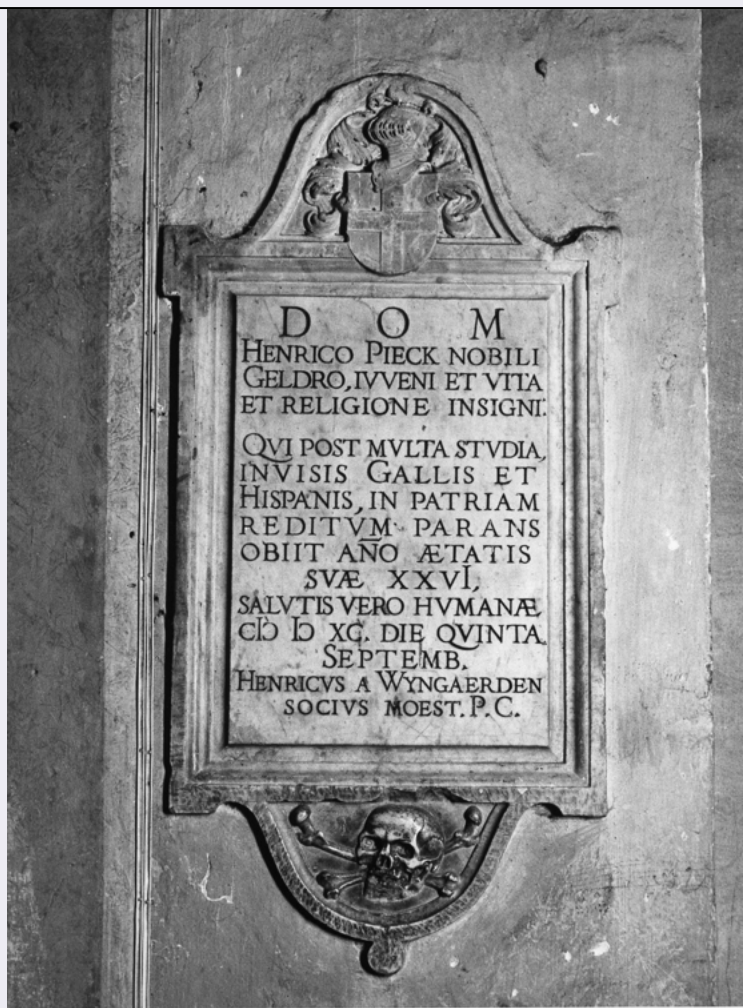 D O M
HENRICO PIECK NOBILI
GELDRO, IVVENI ET VITA
ET RELIGIONE INSIGNI:
QVI POST MVLTA STVDIA,
INVISIS GALLIS ET
HISPANIS, IN PATRIAM
REDITVM PARANS
OBIIT AN̄O ÆTATIS
SVÆ XXVI,
SALVTIS VERO HVMANÆ
CIƆ IƆ XC. DIE QVINTA
SEPTEMB.
HENRICVS A WYNGAERDEN
SOCIVS MOEST. P. C.